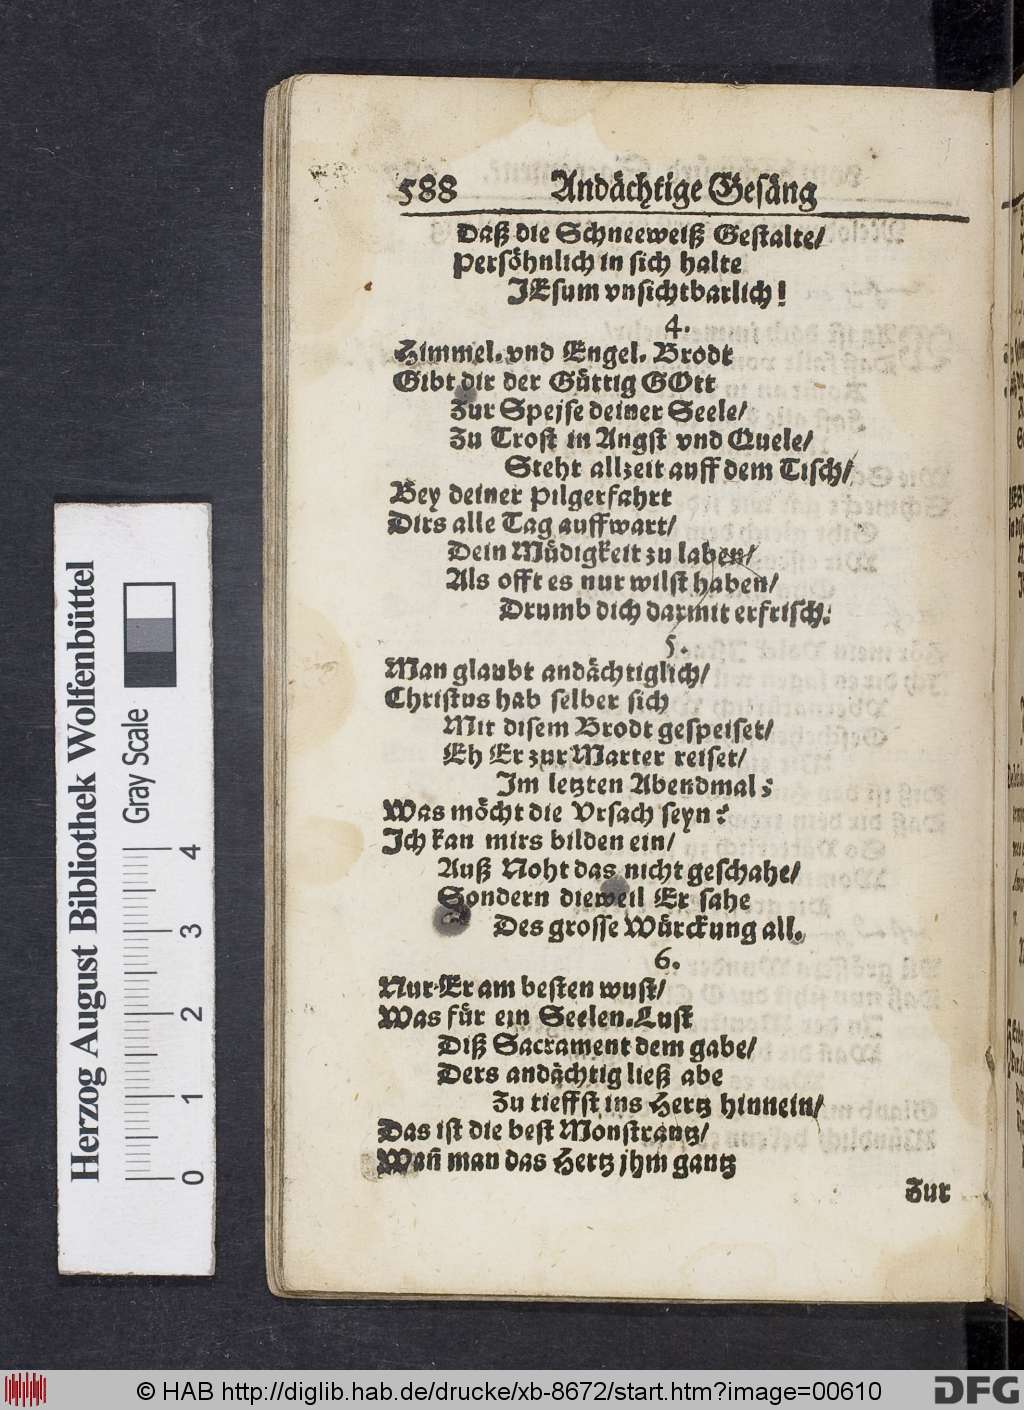 588 Andächtige Gesäng
Daß die Schneeweiß Gestalte/
Persöhnlich in sich halte
JEsum vnsichtbarlich!
4.
Himmel. vnd Engel. Brodt
Gibt dir der Güttig GOtt
Zur Speise deiner Seele/
Zu Trost in Angst vnd Quele/
Steht allzeit auff dem Tisch/
Bey deiner Pilgerfahrt
Dirs alle Tag auffwart/
Dein Müdigkeit zu laben/
Als offt es nur wilst haben/
Drumb dich darmit erfrisch:
5.
Man glaubt andächtiglich/
Christus hab selber sich
Mit disem Brodt gespeiset/
Eh Er zur Marter reiset/
Im letzten Abendmal:
Was möcht die Vrsach seyn:
Ich kan mirs bilden ein/
Auß Noht das nicht geschahe/
Sondern dieweil Er sahe
Des grosse Würckung all.
6.
Nur Er am besten wust/
Was für ein Seelen.Lust
Diß Sacrament dem gabe/
Ders andächtig ließ abe
Zu tieffst ins Hertz hinnein/
Das ist die best Monstrantz/
Wañ man das Hertz jhm gantz
Zur
Herzog August Bibliothek Wolfenbüttel
Gray Scale
0 1 2 3 4
© HAB http://diglib.hab.de/drucke/xb-8672/start.htm?image=00610
DFG